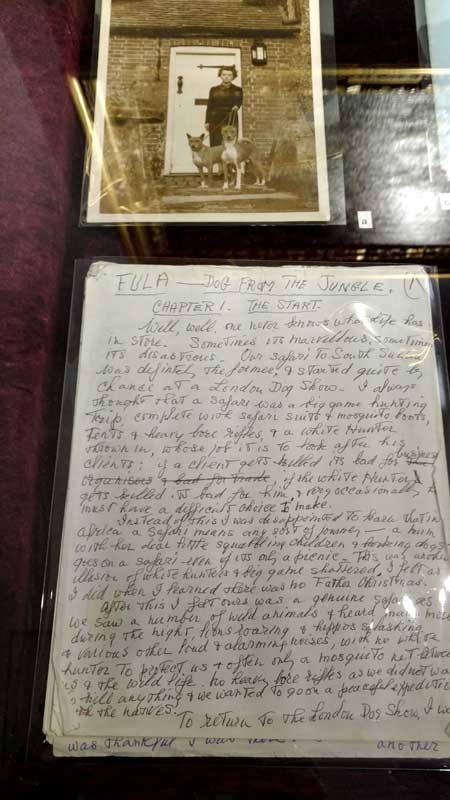 a
FULA — DOG FROM THE JUNGLE.
CHAPTER 1. THE START.
Well, well, one never knows what life has
in store. Sometimes its marvellous, sometimes
its disastrous. Our safari to South Sudan
was definitely the former, & started quite by
chance at a London Dog Show. I always
thought that a safari was a big game hunting
trip, complete with safari suits & mosquito boots,
tents & heavy bore rifles, & a white Hunter
thrown in, whose job it is to look after his
clients; if a client gets killed its bad for business
organisers & bad for trade, if the white Hunter
gets killed its bad for him, & very occasionally
must have a difficult choice to make.
Instead of this I was disappointed to learn that in
Africa a Safari means any sort of journey — a mum
with her dear little squabbling children & barking dogs
goes on a safari even if its only a picnic. This was another
illusion of white hunters & big game shattered, I felt as
I did when I learned there was no Father Christmas.
After this I felt ours was a genuine safari as
we saw a number of wild animals & heard many more
during the night, lions roaring & hippos splashing
& various other loud & alarming noises, with no white
hunter to protect us & often only a mosquito net between
us & the wild life. No heavy bore rifles as we did not want
to kill anything & we wanted to go on a peaceful expedition
the natives.
To return to the London Dog Show, I we
was thankful I was another